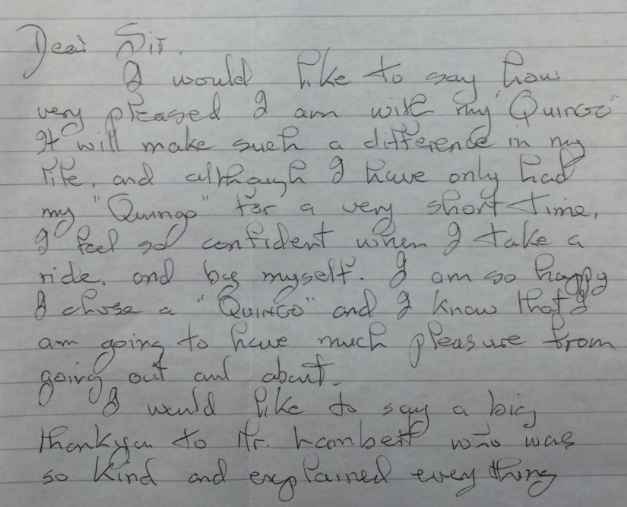 Dear Sir.
I would like to say how
very pleased I am with my "Quingo"
It will make such a difference in my
life, and although I have only had
my "Quingo" for a very short time,
I feel so confident when I take a
ride, and by myself. I am so happy
I chose a "Quingo" and I know that I
am going to have much pleasure from
going out and about.
I would like to say a big
thankyou to Mr. Lambert who was
so kind and explained everything